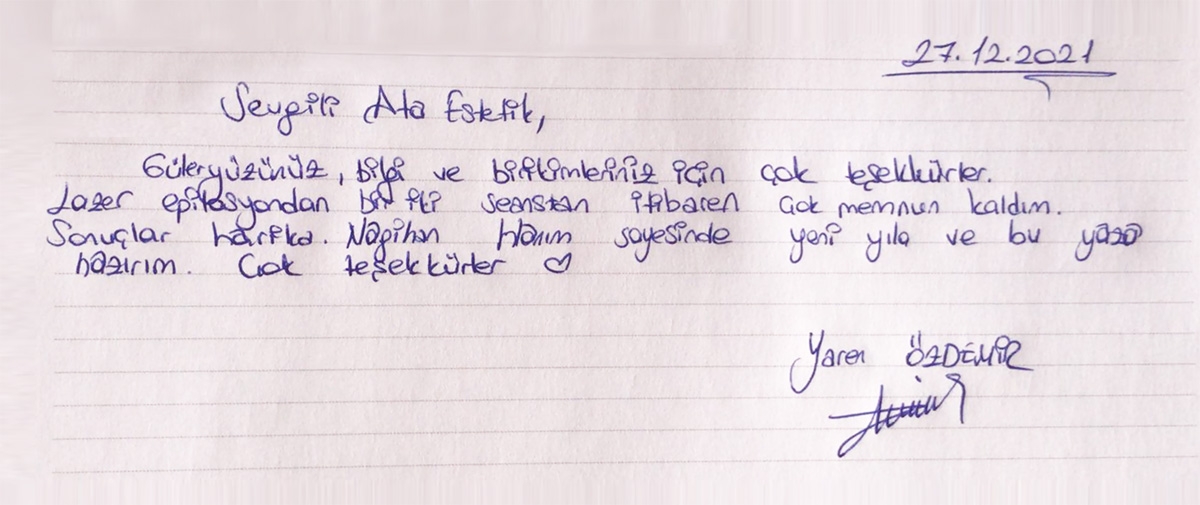 27.12.2021
Sevgili Ata Estetik,
Güleryüzünüz, bilgi ve birikimleriniz için çok teşekkürler.
Lazer epilasyondan bir iki seanstan itibaren çok memnun kaldım.
Sonuçlar harika. Nagihan Hanım sayesinde yeni yıla ve bu yaza
hazırım. Çok teşekkürler ♡
Yaren ÖZDEMİR